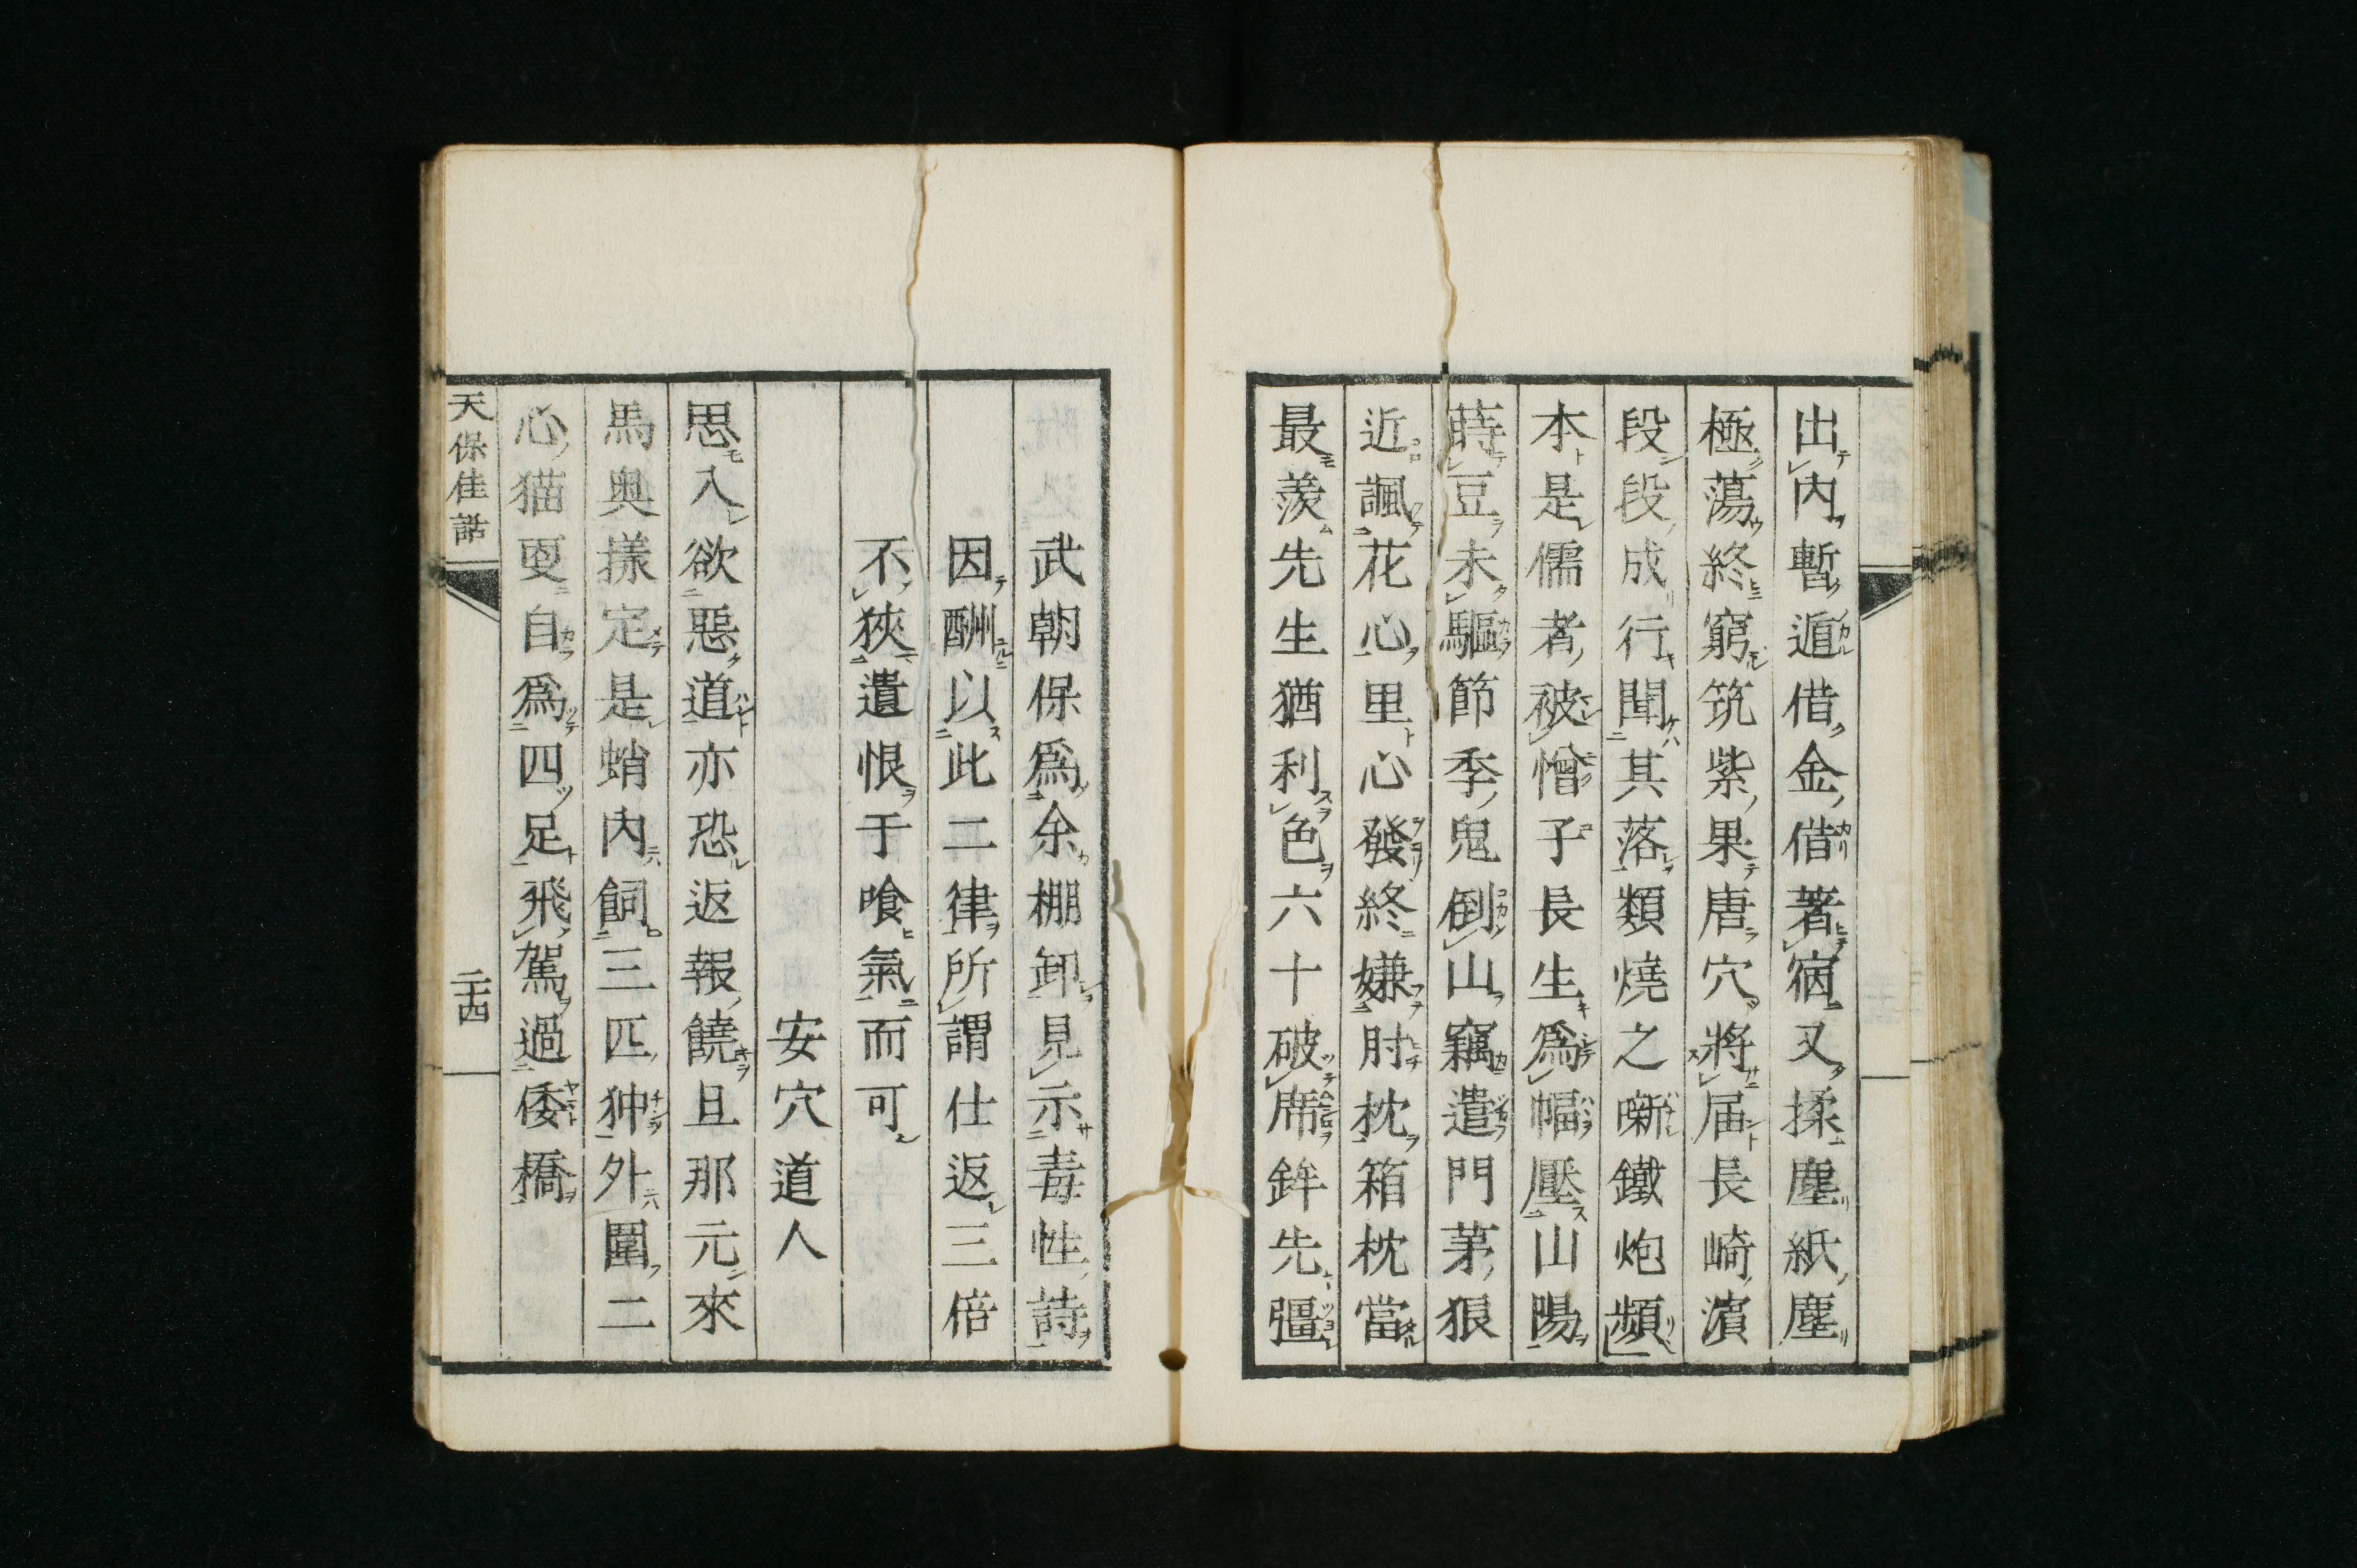 出内暫遁借金借著病又揉塵紙塵
極蕩終窮筑紫果唐穴將届長崎濱
段段成行聞其落類燒之噺鐵炮頻
本是儒者被憎子長生爲幅壓山陽
蒔豆未驅節季鬼倒山竊遣門茅狼
近諷花心里心發終嫌肘枕箱枕當
最羨先生猶利色六十破席鉾先彊
武朝保爲余棚卸見示毒性詩
因酬以此二律所謂仕返三倍
不狹遺恨于喰氣而可
安穴道人
思入欲惡道亦恐返報饒且那元來
馬奥樣定是蛸内飼三匹狆外圍二
心猫更自爲四足飛駕過倭橋
天保佳話
二十四